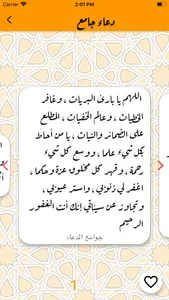 Carrier
2:01 PM
دعاء جامع
اللهم يا بارئ البريات ، وغافر
الخطيات ، وعالم الخفيات ، المطلع
على الضمائر والنيات ، يا من أحاط
بكل شيء علما ، ووسع كل شيء
رحمة ، وقهر كل مخلوق عزة وحكما ،
اغفر لي ذنوبي ، واستر عيوبي ،
وتجاوز عن سيئاتي إنك أنت الغفور
الرحيم
جوامع الدعاء
1